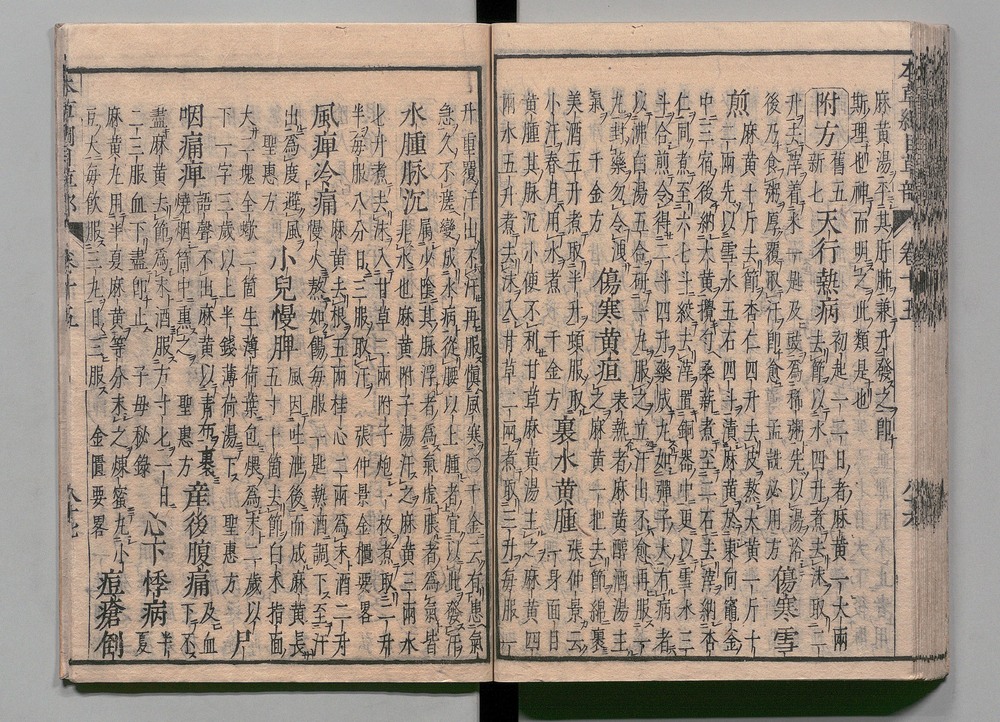 麻黄湯平其肝肺兼升發之即
斯理也神而明之此類是也
附方 舊五新七 天行熱病 初起一二日者麻黄一大兩去節以水四升煮去沫取二
升去滓着米一匙及豉為稀粥先以湯浴
後乃食粥厚覆取汗即愈孟詵必用方 傷寒雪
煎 麻黄十斤去節杏仁四升去皮熬大黄一斤十
二兩先以雪水五石四斗漬麻黄於東向竈釜
中三宿後納大黄攪勻桑薪煮至二石去滓納杏
仁同煮至六七斗絞去滓置銅器中更以雪水三
斗合煎令得二斗四升藥成丸如彈子大有病者
沸白湯五合研一丸服之立汗出不愈再服一
丸封藥勿令洩氣 千金方 傷寒黄疸 表熱者麻黄醇酒湯主之麻黄一把去節綿裹
美酒五升煮取半升頓服取
小汗春月用水煮 千金方 裏水黄腫 張仲景云一身面目
黄腫其脉沉小便不利甘草麻黄湯主之麻黄四
兩水五升煮去沫入甘草二兩煮取三升每服一
升重覆汗出不汗再服慎風寒○千金云有患氣
急久不瘥變成水病從腰以上腫者宜以此發汗
水腫脉沉 屬少陰其脉浮者為氣虚脹者為氣皆非水也麻黄附子湯汗之麻黄三兩水
七升煮去沫入甘草二兩附子炮一枚煮取二升
半每服八分日三服取汗 張仲景金匱要畧
風痺冷痛 麻黄去根五兩桂心二兩為末酒二升慢火熬如餳每服一匙熱酒調下至汗
出為度避風 聖惠方 小兒慢脾 風因吐泄後而成麻黄長五寸十箇去節白木指面
大二塊全蠍二箇生薄荷葉包煨為末二歲以
下一字三歲以上半錢薄荷湯下 聖惠方 尸
咽痛痺 語聲不出麻黄以青布裹燒烟筒中熏之 聖惠方 産後腹痛 及血下不
盡麻黄去節為末酒服方寸匕一日
二三服血下盡即止 子母秘錄 心下悸病 半夏
麻黄丸用半夏麻黄等分末之煉蜜丸小
豆大每飲服三丸日三服 金匱要畧 痘瘡倒